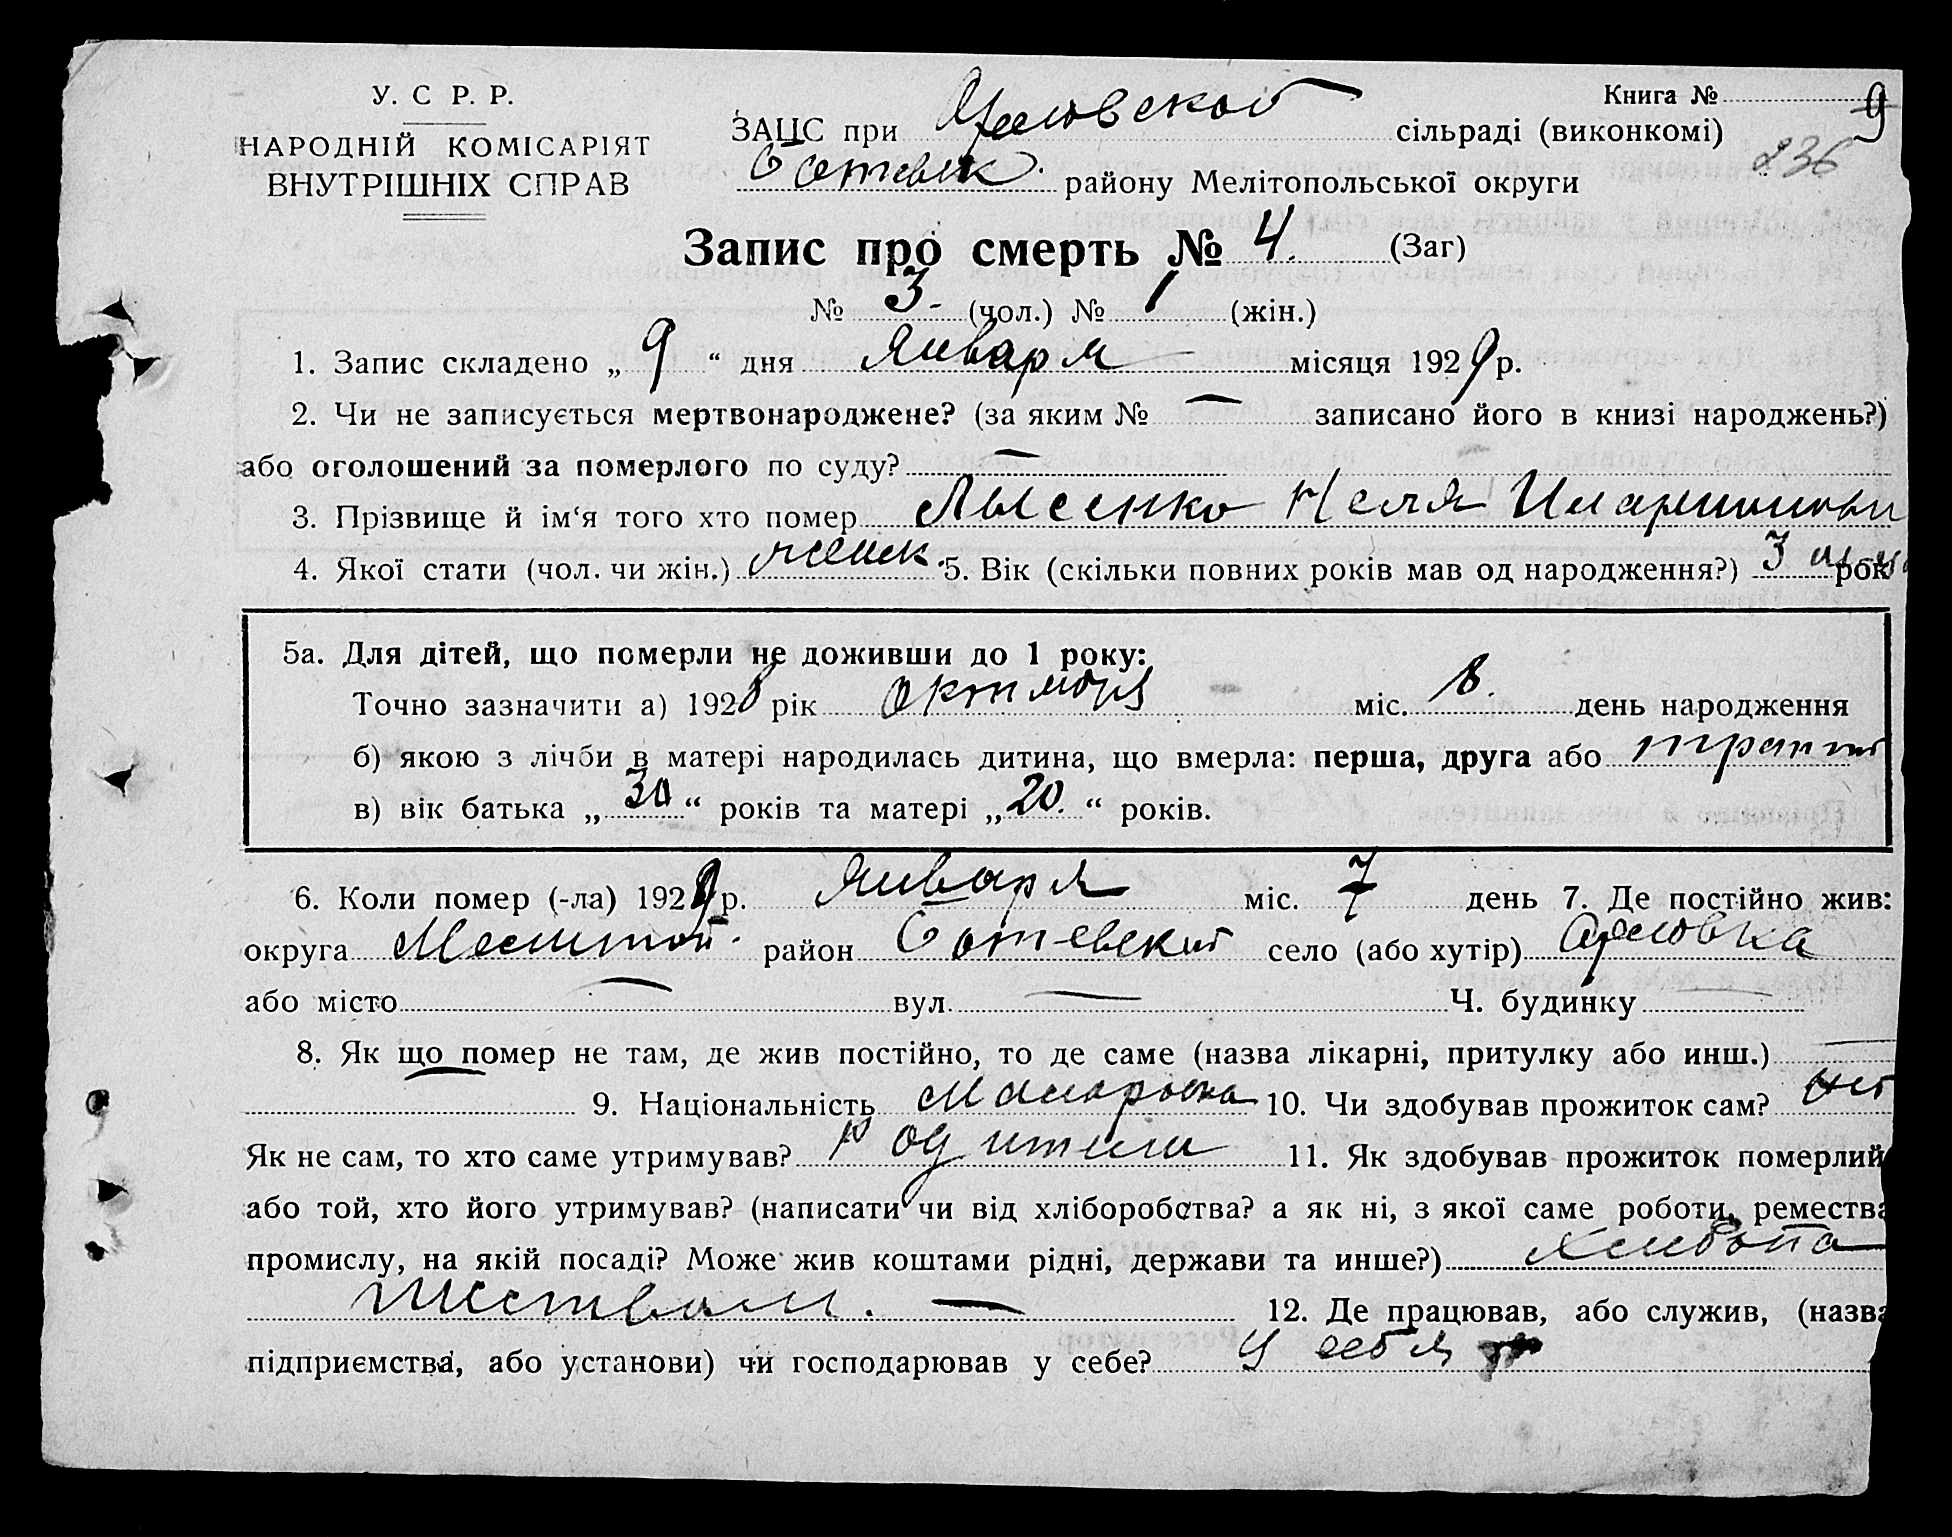 У. С Р. Р.
НАРОДНІЙ КОМІСАРІЯТ
ВНУТРІШНІХ СПРАВ
Книга № 9
236
ЗАЦС при сільраді (виконкомі)
району Мелітопольської округи
Запис про смерть № 4. (Заг)
№ 3- (чол.) № 1 (жін.)
1. Запис складено „ 9 “ дня Января місяця 1929 р.
2. Чи не записується мертвонароджене? (за яким № — записано його в книзі народжень?)
або оголошений за померлого по суду? —
3. Прізвище й ім‘я того хто помер Лысенко Неля
4. Якої стати (чол. чи жін.) женск. 5. Вік (скільки повних років мав од народження?) 3 рок
5а. Для дітей, що померли не доживши до 1 року:
Точно зазначити а) 1928 рік октября міс. 8. день народження
б) якою з лічби в матері народилась дитина, що вмерла: перша, друга або
в) вік батька „ 30 “ років та матері „ 20. “ років.
6. Коли помер (-ла) 1929 р. Января міс. 7 день 7. Де постійно жив:
округа Мелитоп. район село (або хутір) Орловка
або місто — вул. — Ч. будинку —
8. Як що помер не там, де жив постійно, то де саме (назва лікарні, притулку або инш.) —
9. Національність 10. Чи здобував прожиток сам? нет
Як не сам, то хто саме утримував? родители 11. Як здобував прожиток померлий
або той, хто його утримував? (написати чи від хліборобства? а як ні, з якої саме роботи, ремества
промислу, на якій посаді? Може жив коштами рідні, держави та инше?) Хлебопа
шеством. — 12. Де працював, або служив, (назва
підприємства, або установи) чи господарював у себе? У себя